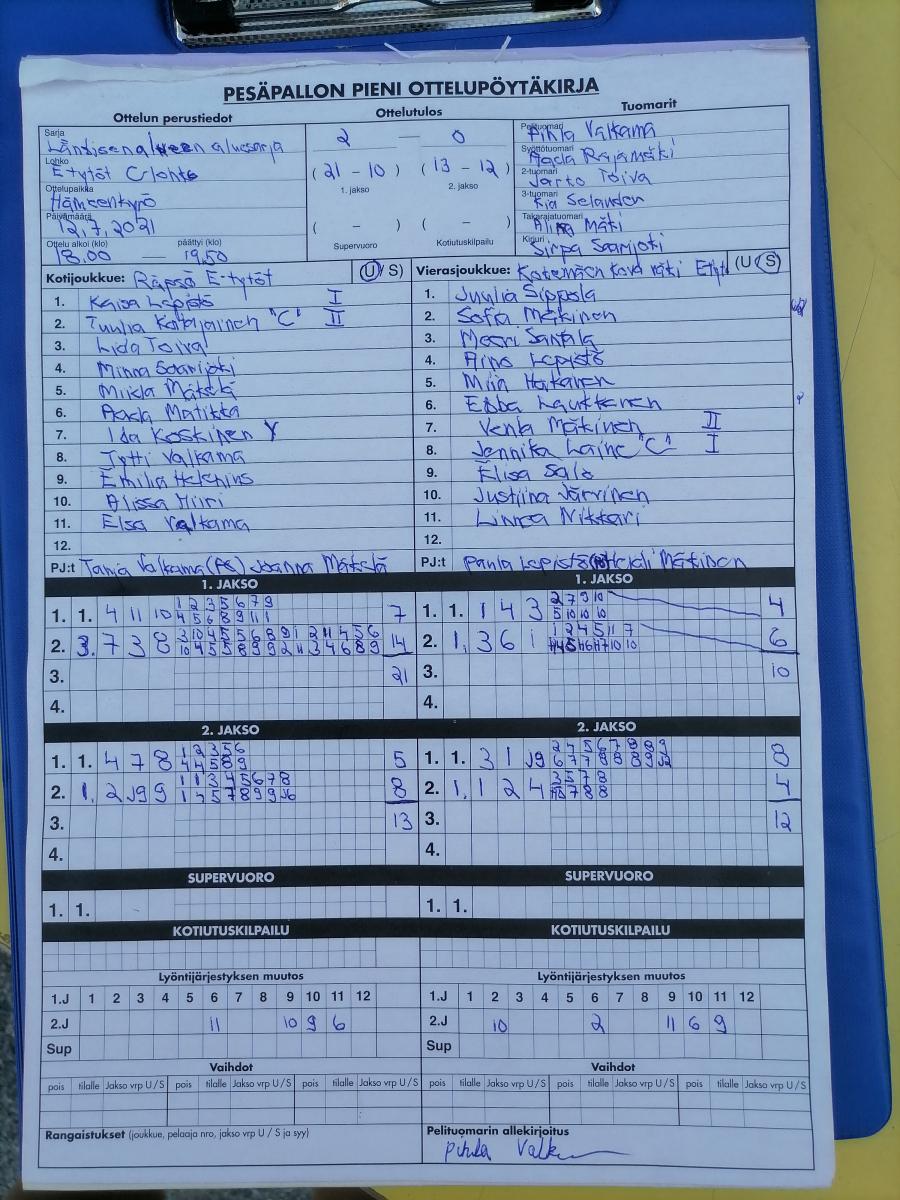 PESÄPALLON PIENI OTTELUPÖYTÄKIRJA
Ottelun perustiedot
Ottelutulos
Tuomarit
Sarja
Läntisenalueen aluesarja
Lohko
E-tytöt C-lohko
Ottelupaikka
Hämeenkyrö
Päivämäärä
12.7.2021
Ottelu alkoi (klo) päättyi (klo)
18.00 — 19.50
2 — 0
(21 - 10) (13 - 12)
1. jakso 2. jakso
( - ) ( - )
Supervuoro Kotiutuskilpailu
Pelituomari
Pihla Valkama
Syöttötuomari
Aada Rajamäki
2-tuomari
Jarto Toiva
3-tuomari
Kia Selander
Takarajatuomari
Alina Mäki
Kirjuri
Sirpa Saarijoki
Kotijoukkue: Räpsö E-tytöt (U/S)
1. Kaisa Lepistö I
2. Tuulia Katajainen "C" II
3. Iida Toiva
4. Minna Saarijoki
5. Miisla Mäkelä
6. Aada Matikka
7. Ida Koskinen Y
8. Tytti Valkama
9. Emilia Helenins
10. Alissa Hiiri
11. Elsa Valkama
12.
PJ:t Tanja Valkama (PS) Joanna Mäkelä
Vierasjoukkue: (U/S)
1. Juulia Sippola
2. Sofia Mäkinen
3. Meeri Santala
4. Aino Lepistö
5. Miia Hakanen
6. Ebba Laukkanen
7. Venla Mäkinen II
8. Jennika Laine "C" I
9. Elisa Salo
10. Justiina Järvinen
11. Linnea Nikkari
12.
PJ:t Paula Lepistö Heidi Mäkinen
1. JAKSO
1. 1. 4 11 10 1 2 3 5 6 7 9 7
4 5 6 8 9 11 1
2. 3. 7 3 8 3 10 4 5 5 6 8 9 1 2 11 4 5 6 14
10 4 5 5 8 9 9 2 11 3 4 6 8 9
3. 21
4.
1. JAKSO
1. 1. 1 4 3 2 7 9 10 4
5 10 10 10
2. 1. 3 6 1 1 2 4 5 11 7 6
3. 10
4.
2. JAKSO
1. 1. 4 7 8 1 2 3 5 6 5
4 4 5 8 9
2. 1. 2 J9 9 1 1 3 4 5 6 7 8 8
1 4 5 7 8 9 9 J6
3. 13
4.
2. JAKSO
1. 1. 3 1 J9 2 4 5 6 7 8 8 9 8
6 7 7 8 8 8 9 J2
2. 1. 1 2 4 3 5 7 8 4
7 8 8
3. 12
4.
SUPERVUORO
1. 1.
SUPERVUORO
1. 1.
KOTIUTUSKILPAILU
KOTIUTUSKILPAILU
Lyöntijärjestyksen muutos
1.J 1 2 3 4 5 6 7 8 9 10 11 12
2.J 11 10 9 6
Sup
Lyöntijärjestyksen muutos
1.J 1 2 3 4 5 6 7 8 9 10 11 12
2.J 10 2 11 6 9
Sup
Vaihdot
pois tilalle Jakso vrp U/S pois tilalle Jakso vrp U/S pois tilalle Jakso vrp U/S
Vaihdot
pois tilalle Jakso vrp U/S pois tilalle Jakso vrp U/S pois tilalle Jakso vrp U/S
Rangaistukset (joukkue, pelaaja nro, jakso vrp U / S ja syy)
Pelituomarin allekirjoitus
Pihla Valk